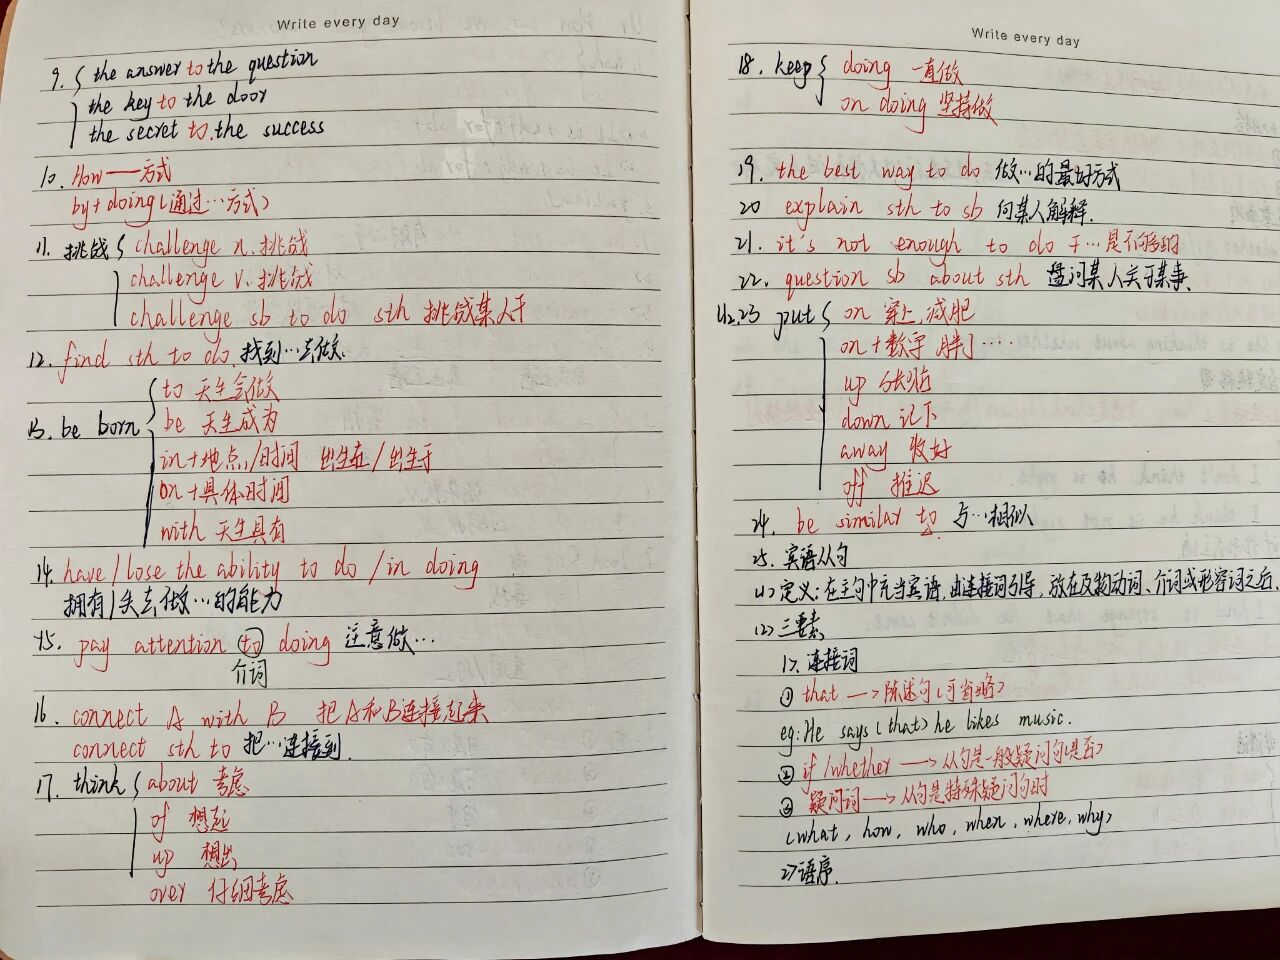 Write every day
9. { the answer to the question
the key to the door
the secret to the success
10. How——方式
by+doing(通过…方式)
11. 挑战 { challenge n. 挑战
challenge v. 挑战
challenge sb to do sth 挑战某人干
12. find sth to do. 找到…去做.
13. be born { to 天生会做
be 天生成为
in+地点/时间 出生在/出生于
on+具体时间
with 天生具有
14. have/lose the ability to do /in doing
拥有/失去做…的能力
15. pay attention to doing 注意做…
介词
16. connect A with B 把A和B连接起来
connect sth to 把…连接到.
17. think { about 考虑
of 想起
up 想出
over 仔细考虑
Write every day
18. keep { doing 一直做
on doing 坚持做
19. the best way to do 做…的最好方式
20 explain sth to sb 向某人解释.
21. it's not enough to do 干…是不够的
22. question sb about sth 盘问某人关于某事.
23 put { on 穿上,减肥
on+数字
up 张贴
down 记下
away 收好
off 推迟
24. be similar to 与…相似
25. 宾语从句
(1)定义:在主句中充当宾语,由连接词引导,放在及物动词、介词或形容词之后.
(2)三要素
1>.连接词
① that —> 陈述句(可省略)
eg: He says (that) he likes music.
② if /whether —> 从句是一般疑问句(是否)
③ 疑问词 —> 从句是特殊疑问句时
(what, how, who, when, where, why)
2>语序.